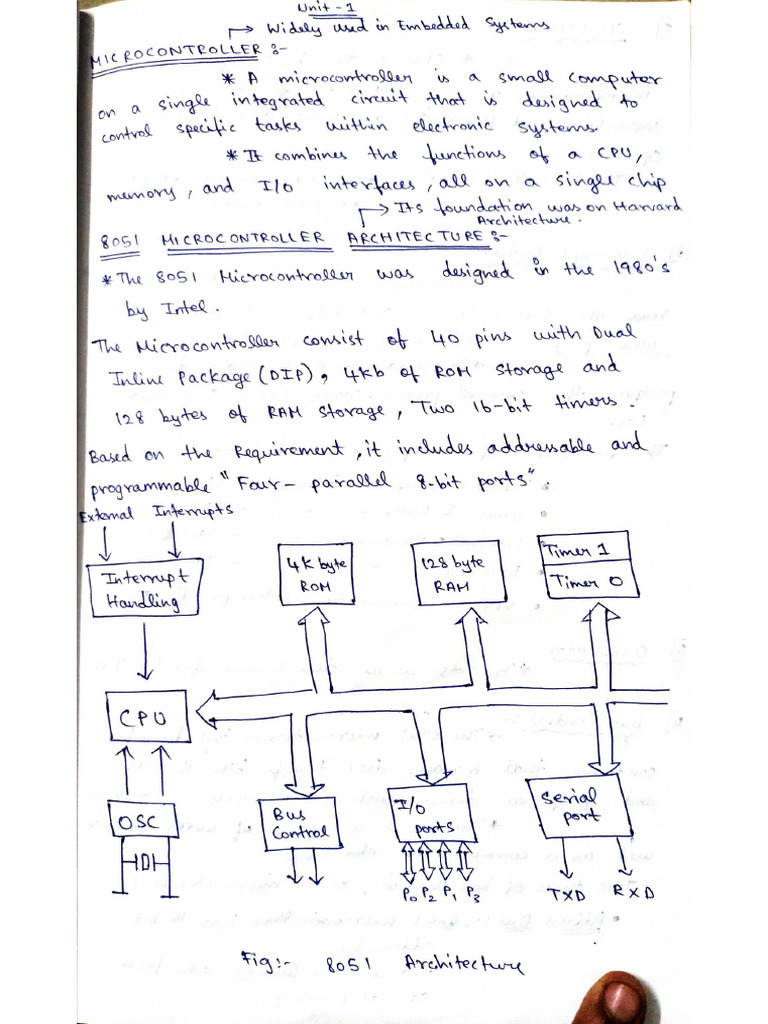 Unit - 1
→ Widely used in Embedded Systems
MICROCONTROLLER :-
* A microcontroller is a small computer
on a single integrated circuit that is designed to
control specific tasks within electronic systems.
* It combines the functions of a CPU,
memory, and I/O interfaces, all on a single chip
→ Its foundation was on Harvard
Architecture.
8051 MICROCONTROLLER ARCHITECTURE :-
* The 8051 Microcontroller was designed in the 1980's
by Intel.
The Microcontroller consist of 40 pins with Dual
Inline Package (DIP), 4kb of ROM storage and
128 bytes of RAM storage, Two 16-bit timers.
Based on the Requirement, it includes addressable and
programmable "Four - parallel 8-bit ports".
External Interrupts
Interrupt
Handling
4K byte
ROM
128 byte
RAM
Timer 1
Timer 0
CPU
OSC
Bus
Control
I/O
ports
Serial
port
P0 P2 P1 P3
TXD RXD
Fig:- 8051 Architecture